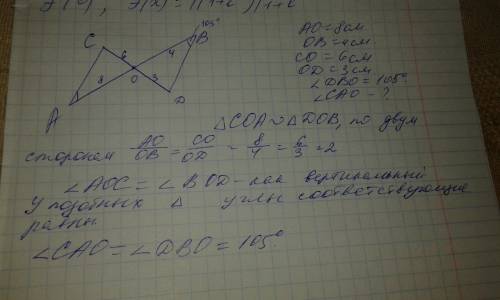 105°
C
B
6
4
O
8
3
A
D
AO = 8см
OB = 4см
CO = 6см
OD = 3см
∠DBO = 105°
∠CAO - ?
△COA ∾ △DOB, по двум
сторонам AO/OB = CO/OD = 8/4 = 6/3 = 2
∠AOC = ∠BOD - как вертикальный
У подобных △ углы соответствующие
равны.
∠CAO = ∠DBO = 105°